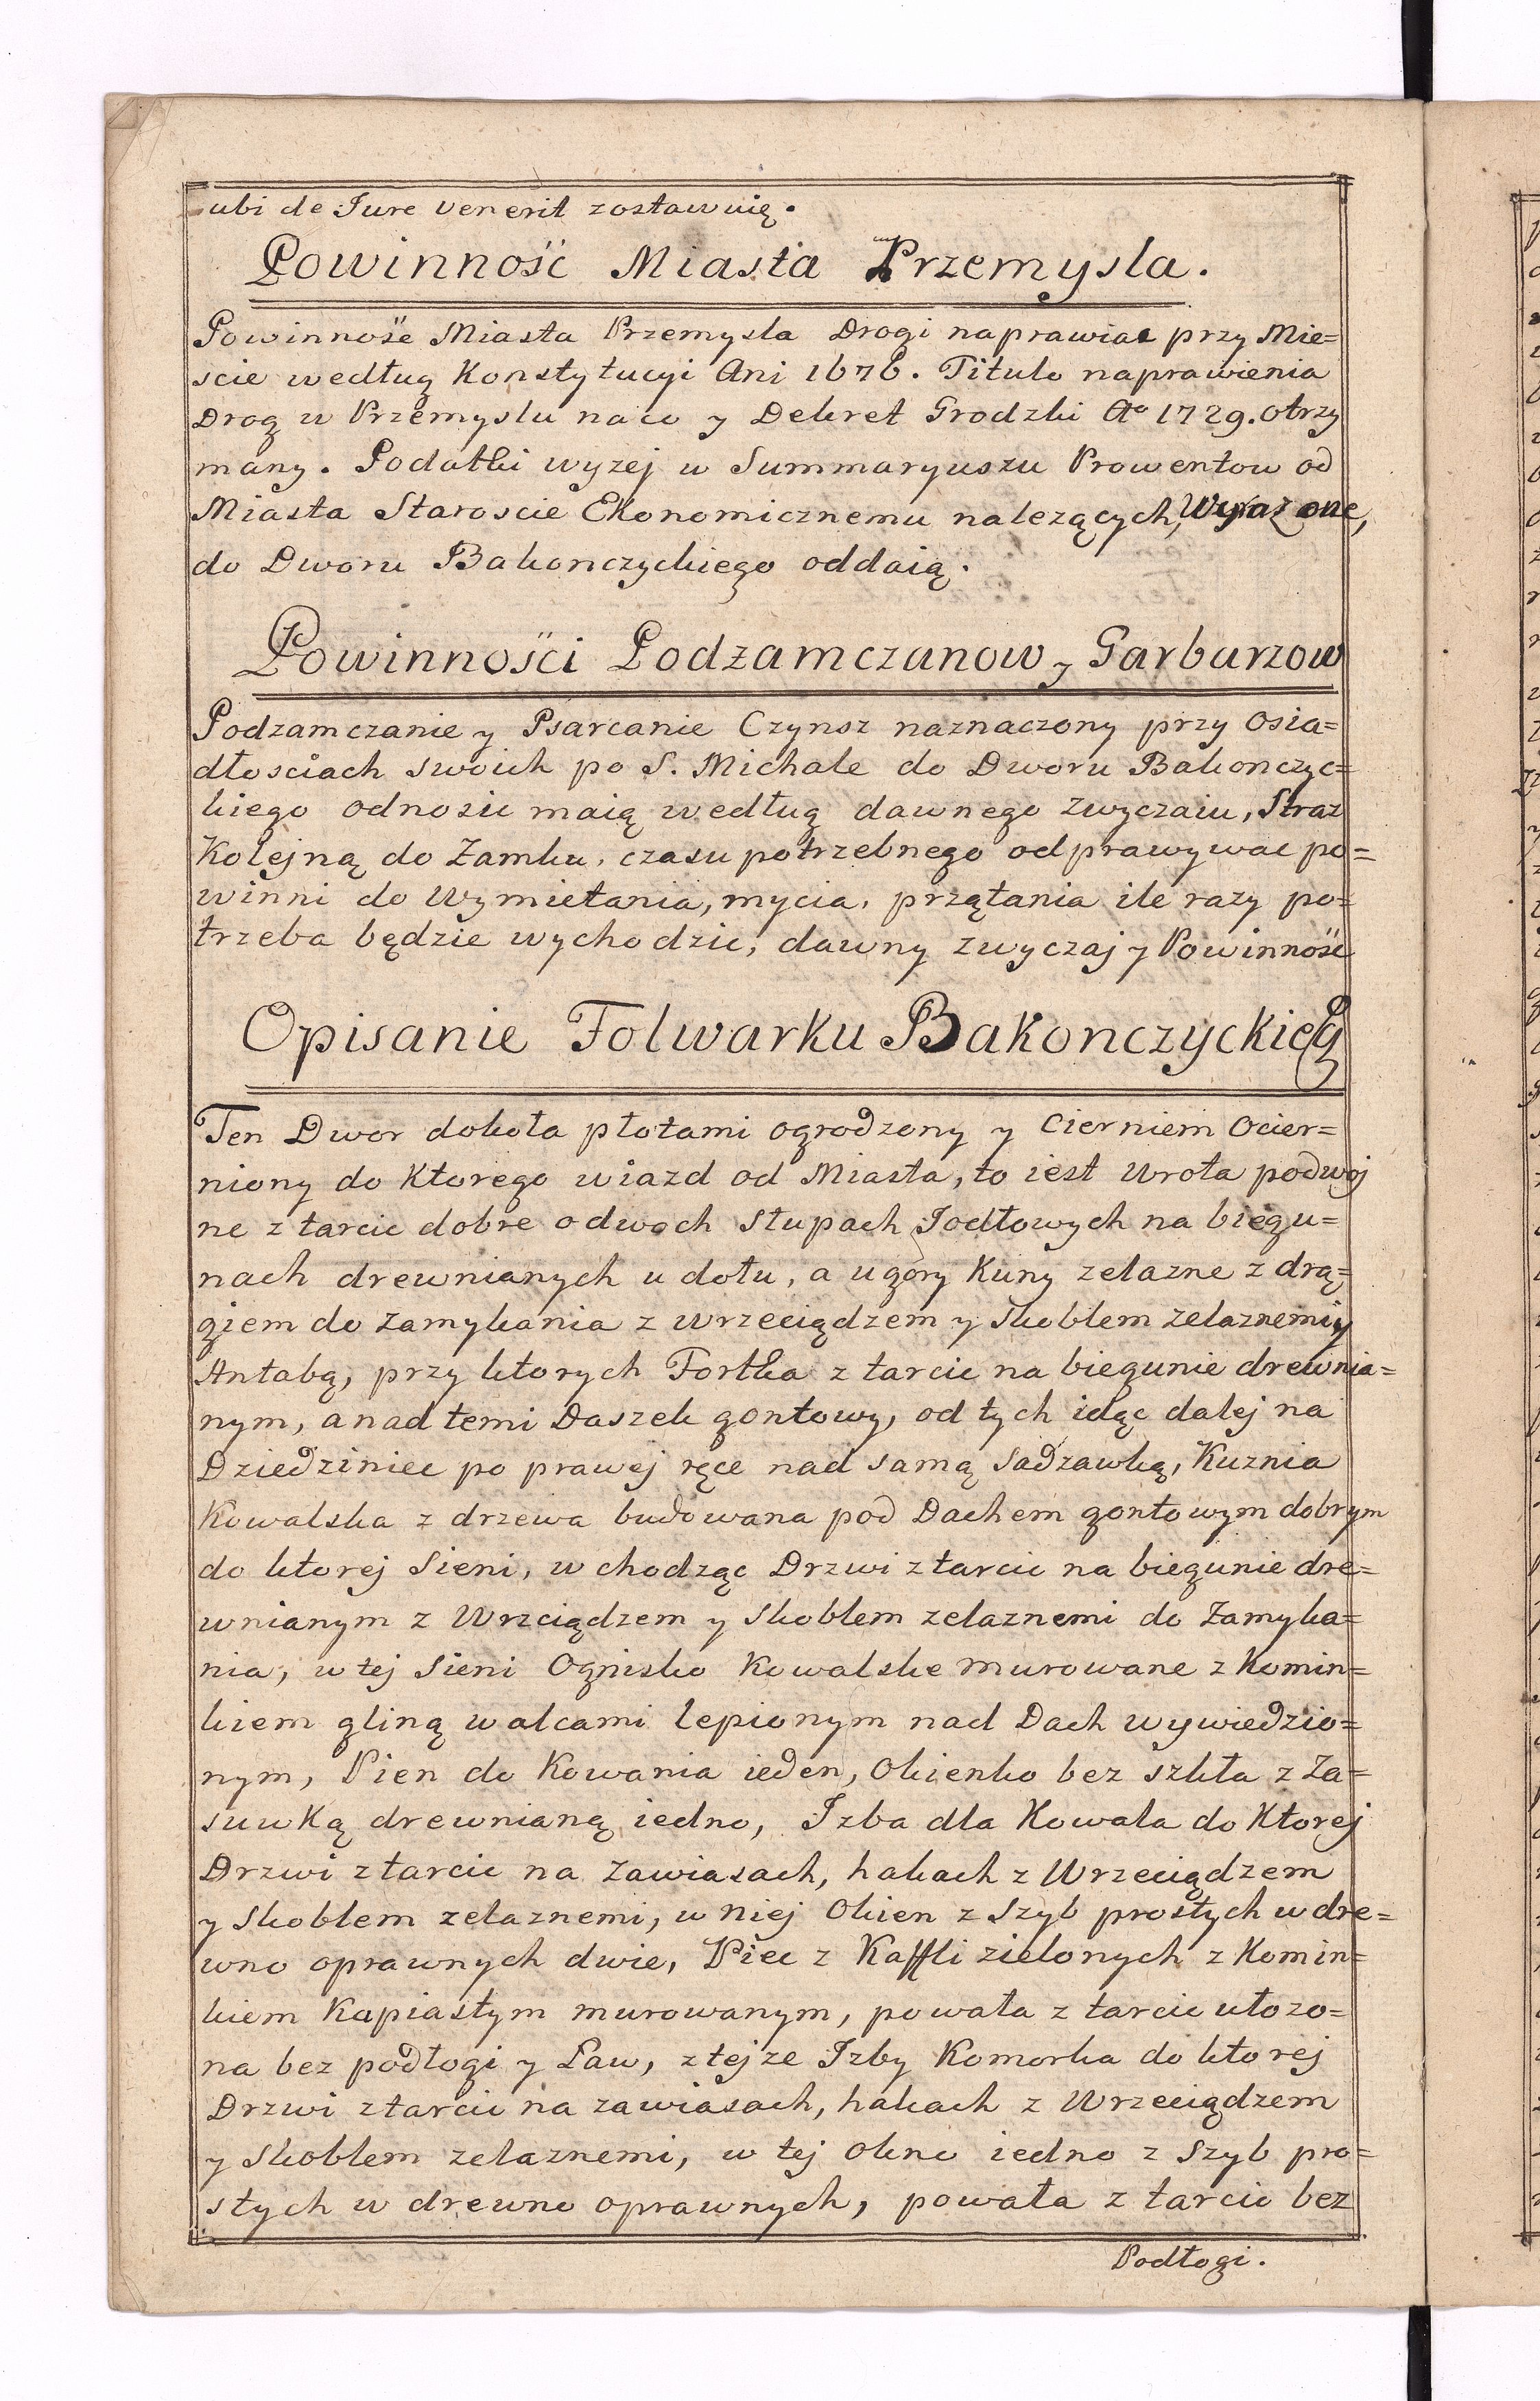 ubi de Jure venerit zostawuię.
Powinność Miasta Przemysla.
Powinnośc Miasta Przemysla Drogi naprawiac przy Mie=
scie według Konstytucyi Ani 1676. Titulo naprawienia
Drog w Przemyslu na co y Dekret Grodzki Ao 1729. otrzy
many. Podatki wyzej w Summaryuszu Prowentow od
Miasta Staroscie Ekonomicznemu nalezących, Wyrazone,
do Dworu Bakonczyckiego oddaią.
Powinności Podzamczanow y Garbarzow
Podzamczanie y Psarcanie Czynsz naznaczony przy Osia=
dłosciach swoich po S. Michale do Dworu Bakonczyc=
kiego odnosic maią według dawnego zwyczaiu, Straz
Kolejną do Zamku, czasu potrzebnego odprawywac po=
winni do Wymietania, mycia, przątania ile razy po=
trzeba będzie wychodzic, dawny zwyczaj y Powinnośc
Opisanie Folwarku Bakonczyckieg
Ten Dwor dokoła płotami ogrodzony y Cierniem Ocier=
niony do Ktorego wiazd od Miasta, to iest Wrota podwoj
ne z tarcic dobre o dwoch Słupach Jodłowych na biegu=
nach drewnianych u dołu, a u gory Kuny zelazne z drą=
giem do zamykania z wrzeciądzem y Skoblem zelaznemi y
Antabą, przy ktorych Fortka z tarcic na biegunie drewnia=
nym, a nad temi Daszek gontowy, od tych idąc dalej na
Dziedziniec po prawej ręce nad samą Sadzawką, Kuznia
Kowalska z drzewa budowana pod Dachem gontowym dobrym
do ktorej Sieni, wchodząc Drzwi z tarcic na biegunie dre=
wnianym z Wrzciądzem y Skoblem zelaznemi do Zamyka=
nia, w tej Sieni Ognisko Kowalskie murowane z Komin=
kiem gliną walcami lepionym nad Dach wywiedzio=
nym, Pien do Kowania ieden, Okienko bez szkła z Za=
suwką drewnianą iedno, Izba dla Kowala do Ktorej
Drzwi z tarcic na Zawiasach, hakach z Wrzeciądzem
y Skoblem zelaznemi, w niej Okien z Szyb prostych w dre=
wno oprawnych dwie, Piec z Kaffli zielonych z Komin=
kiem Kapiastym murowanym, powała z tarcic ułozo=
na bez podłogi y Ław, z tejze Izby Komorka do ktorej
Drzwi z tarcic na zawiasach, hakach z Wrzeciądzem
y Skoblem zelaznemi, w tej Okno iedno z Szyb pro=
stych w drewno oprawnych, powała z tarcic bez
Podłogi.